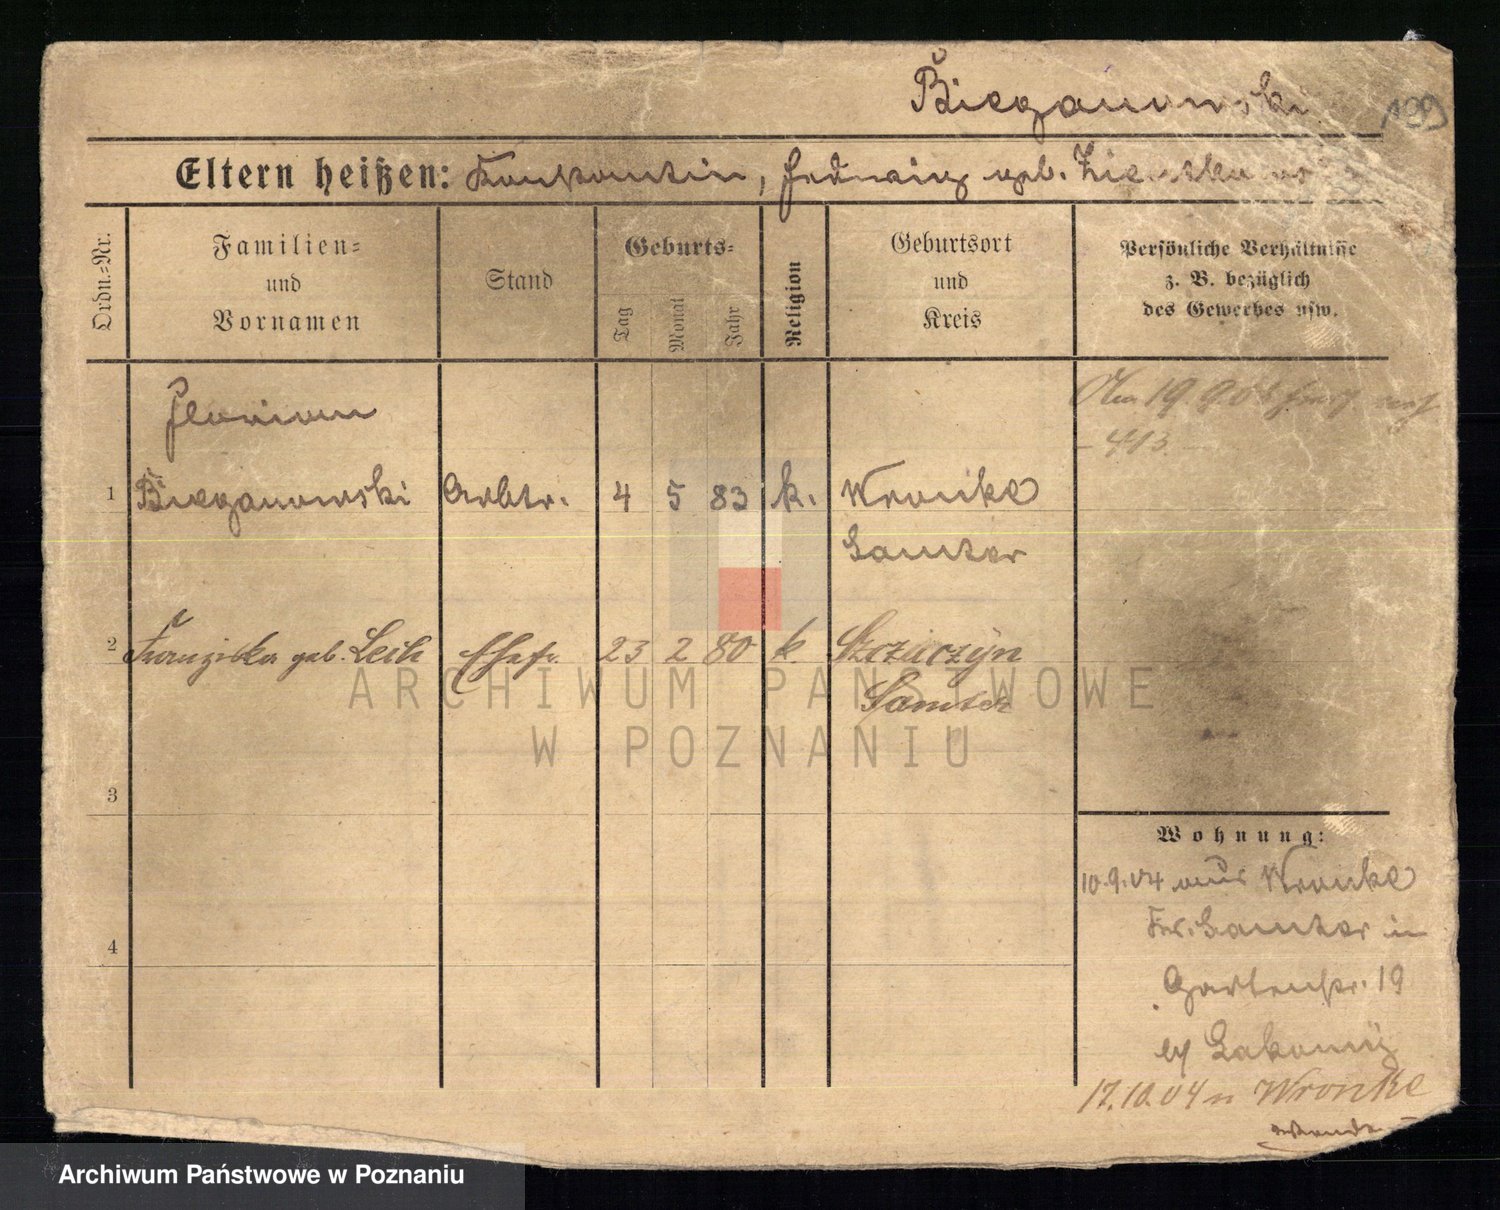 Bieganowski
199
Eltern heißen: Konstantin, Hedwig geb.
Ordn.-Nr.
Familien-
und
Vornamen
Stand
Geburts-
Tag
Monat
Jahr
Religion
Geburtsort
und
Kreis
Persönliche Verhältnisse
z. B. bezüglich
des Gewerbes usw.
Florian
1 Bieganowski Arbtr. 4 5 83 k. Wronke
Samter
2 Franziska geb. Leik Ehefr. 23 2 80 k.
Samter
3
4
Wohnung:
10.9.04 aus Wronke
Kr. Samter in
Gartenstr. 19
b/ Lakomy
17.10.04 n Wronke
wenden
ARCHIWUM PAŃSTWOWE
W POZNANIU
Archiwum Państwowe w Poznaniu